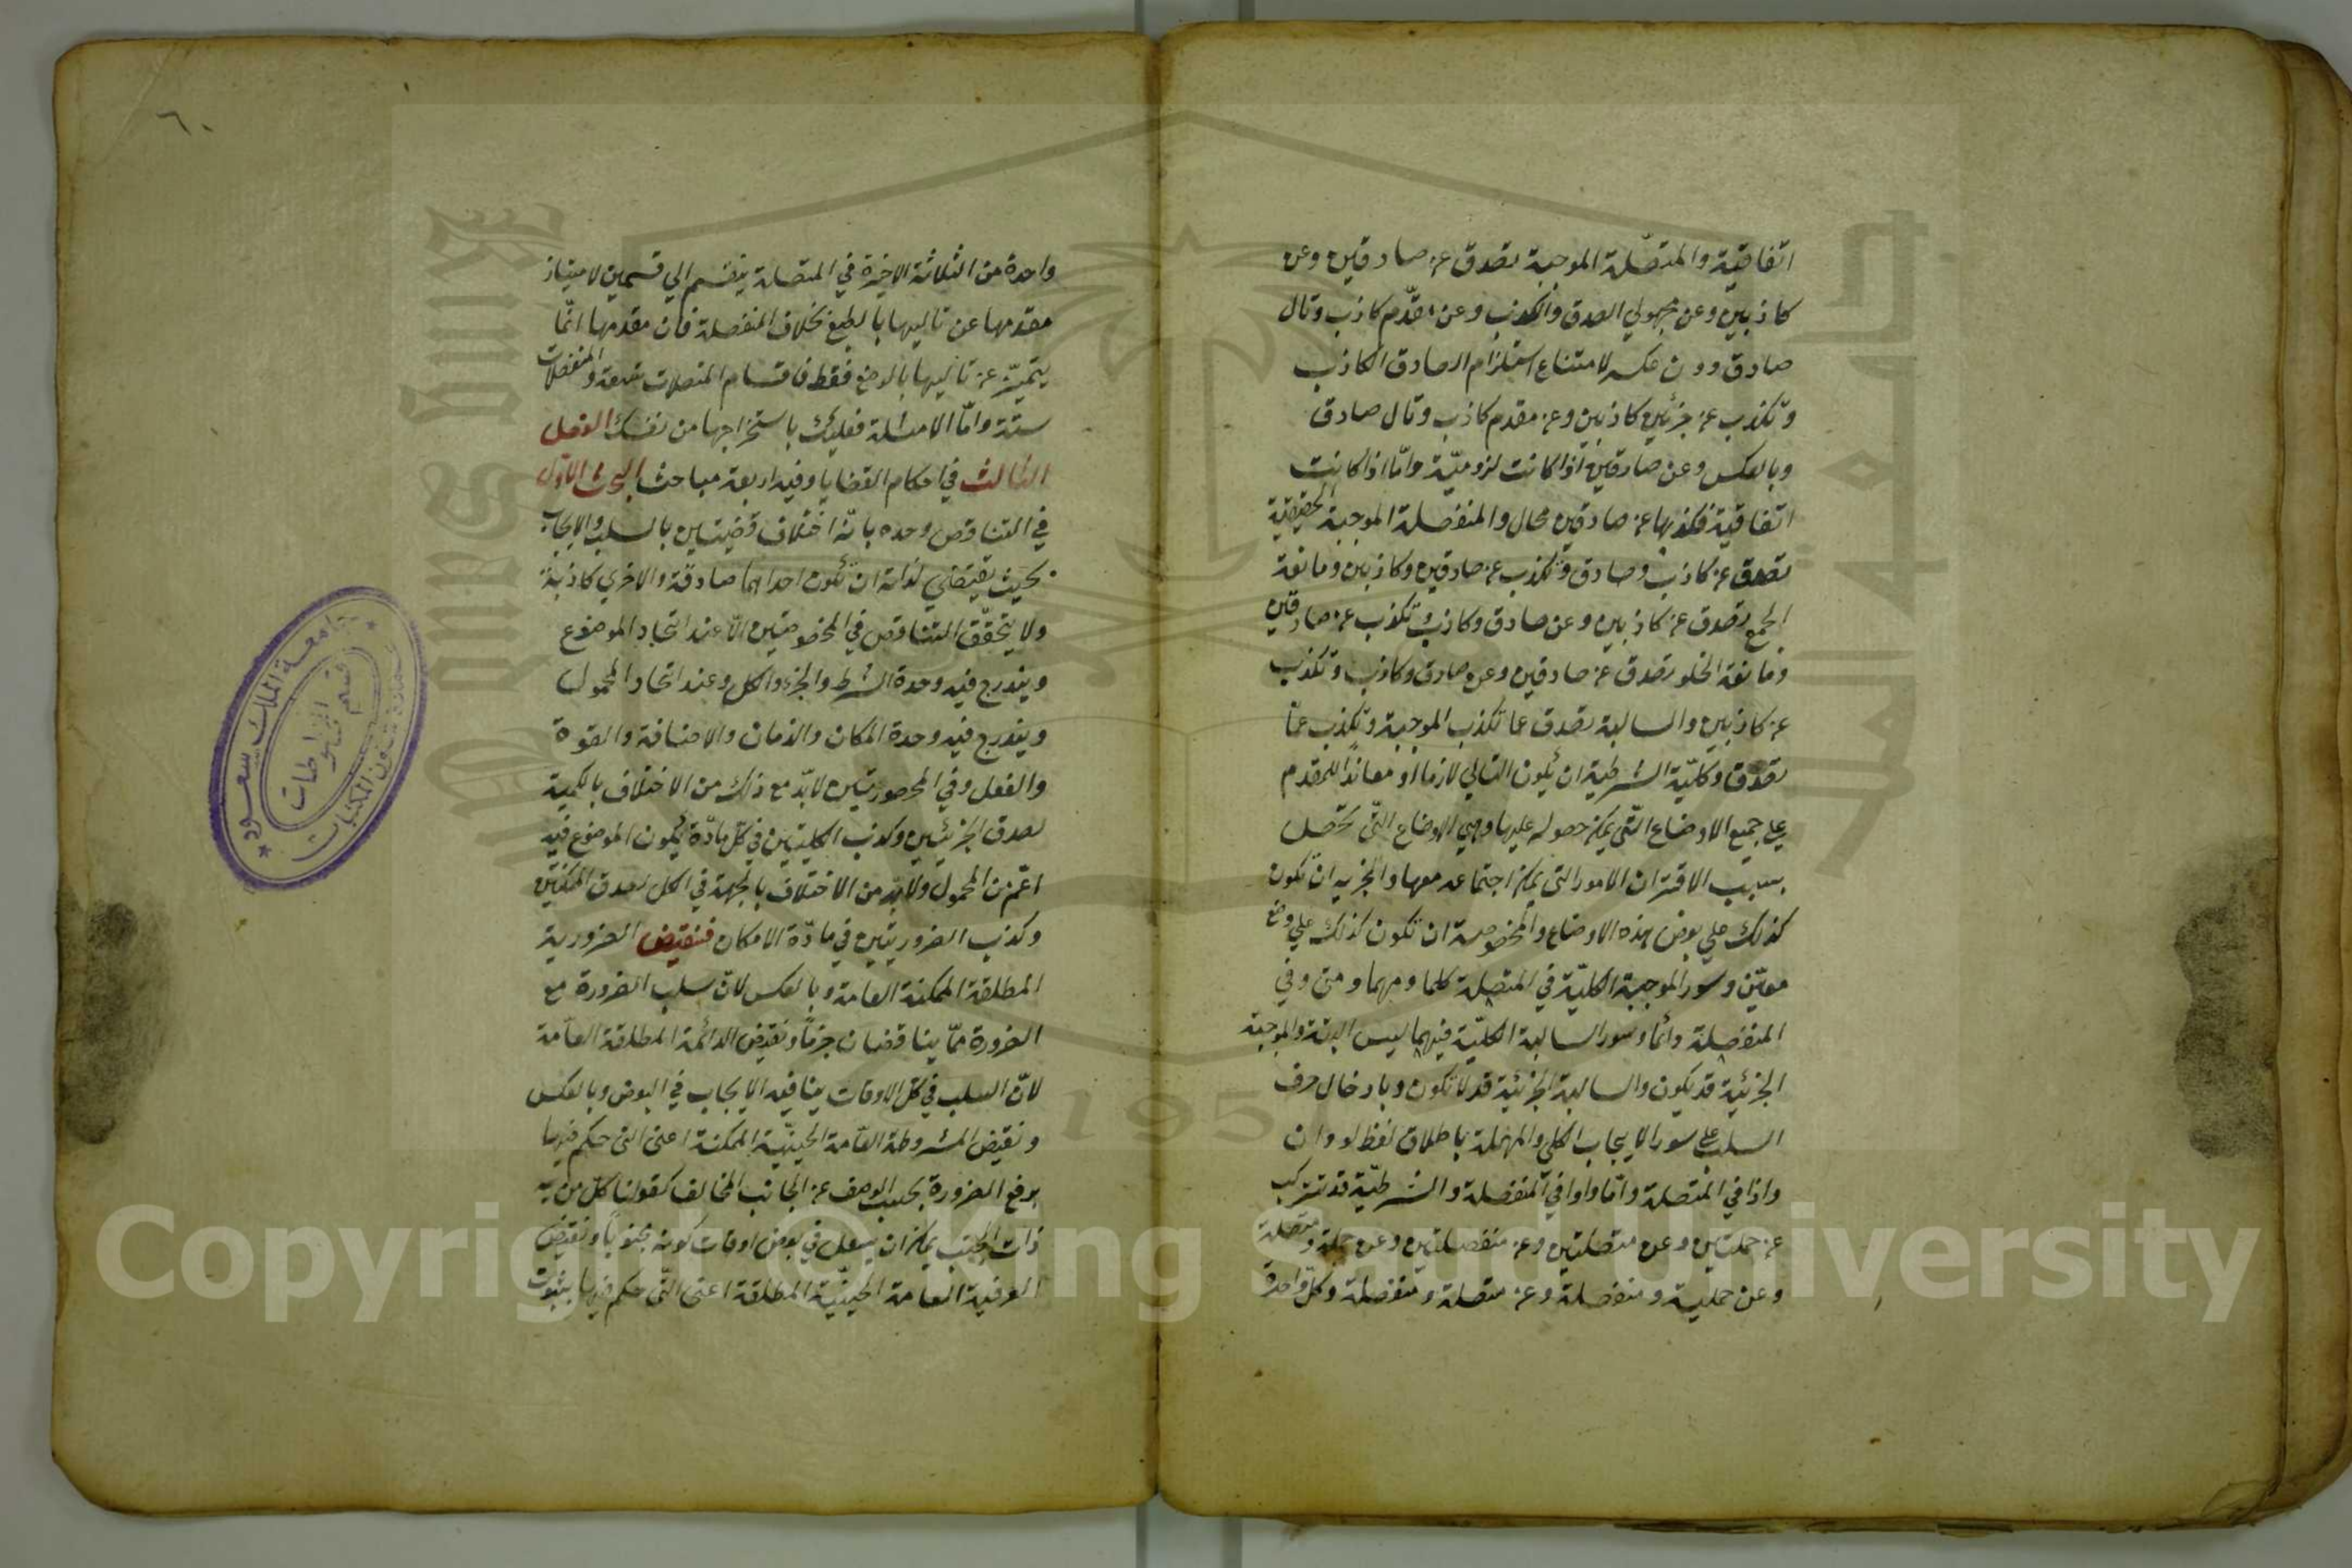 اتفاقيّة والمتصّلة الموجبة تصدق عن صادقين وعن
كاذبين وعن مجهولي الصدق والكذب وعن مقدّم كاذب وتال
صادق دون عكسه لامتناع استلزام الصادق الكاذب
وتكذب عن جزئين كاذبين وعن مقدم كاذب وتال صادق
وبالعكس وعن صادقين اذا كانت لزوميّة وامّا اذا كانت
اتفاقية فكذبها عن صادقين محال والمنفصلة الموجبة الحقيقية
تصدق عن كاذب وصادق وتكذب عن صادقين وكاذبين ومانعة
الجمع تصدق عن كاذبين وعن صادق وكاذب وتكذب عن صادقين
ومانعة الخلو تصدق عن صادقين وعن صادق وكاذب وتكذب
عن كاذبين والسالبة تصدق عما تكذب الموجبة وتكذب عمّا
تصدق وكليّة الشرطية ان يكون التالي لازما او معاندا للمقدم
علي جميع الاوضاع التّي يمكن حصوله عليها وهي الاوضاع التّي تحصل
بسبب الاقتران الامور التي يمكن اجتماعه معها والجزئيه ان تكون
كذلك علي بعض هذه الاوضاع والمخصوصة ان تكون كذلك علي وضع
معيّن وسور الموجبة الكليّة في المتصلة كلما ومهما ومتى وفي
المنفصلة دائما وسور السالبة الكليّة فيهما ليس البتة والموجبة
الجزئية قد يكون والسالبة الجزئية قد لا تكون وبادخال حرف
السلب علي سور الايجاب الكلي والمهملة باطلاق لفظ لو وان
واذا في المتصلة وامّا واو في المنفصلة والشرطيّة قد تتركب
عن حمليتين وعن متصلتين وعن منفصلتين وعن حملية ومتصلة
وعن حملية ومنفصلة وعن متصلة ومنفصلة وكلّ واحدة
٦٠
واحدة من الثلاثة الاخيرة في المتصلة ينقسم الي قسمين لامتياز
مقدمها عن تاليها بالطبع بخلاف المنفصلة فان مقدمها انّما
يتميّز عن تاليها بالوضع فقط فاقسام المتصلات تسعة والمنفصلات
ستة وامّا الامثلة فعليك باستخراجها من نفسك الفصل
الثالث في احكام القضايا وفيه اربعة مباحث البحث الاوّل
في التناقض وحده بانّه اختلاف قضيتين بالسلب والايجاب
بحيث يقتضي لذاته ان تكون احداهما صادقة والاخري كاذبة
ولا يتحقّق التناقض في المخصوصتين الّا عند اتّحاد الموضوع
ويندرج فيه وحدة الشرط والجزء والكل وعند اتحاد المحمول
ويندرج فيه وحدة المكان والزمان والاضافة والقوة
والفعل وفي المحصورتين لا بدّ مع ذلك من الاختلاف بالكمية
لصدق الجزئيتين وكذب الكليتين في كلّ مادّة يكون الموضوع فيه
اعّم من المحمول ولا بدّ من الاختلاف بالجهة في الكل لصدق الممكنتين
وكذب الضروريتين في مادّة الامكان فنقيض الضرورية
المطلقة الممكنة العامة وبالعكس لانّ سلب الضرورة مع
الضرورة ممّا يناقضان جزمًا ونقيض الدائمة المطلقة العاّمة
لانّ السلب في كلّ الاوقات ينافيه الايجاب في البعض وبالعكس
ونقيض المشروطة العاّمة الحينيّة الممكنة اعنى التى حكم فيها
برفع الضرورة بحسب الوصف عن الجانب المخالف كقولنا كلّ من به
ذات الجنب يمكن ان يسعل في بعض اوقات كونه مجنوبًا ونقيض
العرفية العامة الحينيّة المطلقة اعنى التّى حكم فيها بثبوت
جامعة الملك سعود
عمادة شئون المكتبات
قسم المخطوطات
1957
Copyright © King Saud University